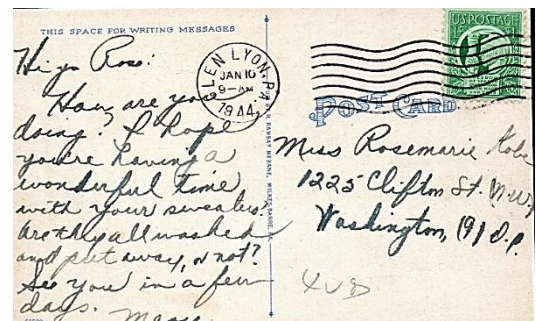 THIS SPACE FOR WRITING MESSAGES
Hi ya Rose!
How are you
doing? I hope
you're having a
wonderful time
with your sweaters?
Are they all washed
and put away, or not?
See you in a few
days.
GLEN LYON, PA.
JAN 10
9-AM
1944
U.S. POSTAGE
1¢
POST CARD
Miss Rosemarie
1225 Clifton St. N.W.
Washington, (9) D.C.